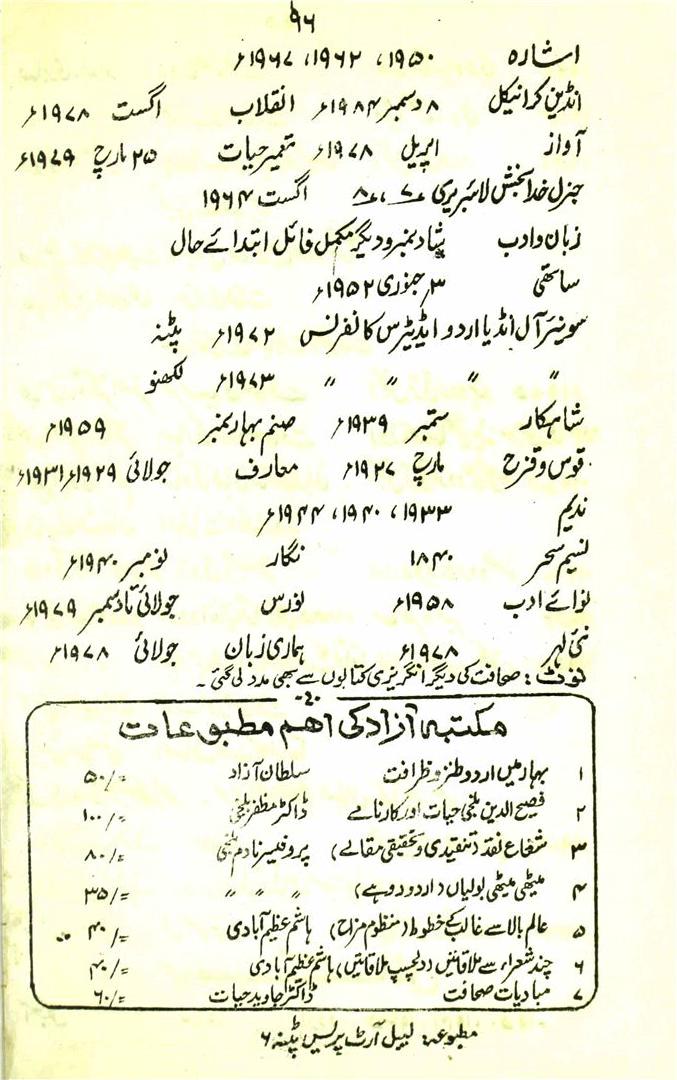 ۹۶
اشارہ ۱۹۵۰، ۱۹۶۲، ۱۹۶۷ء
انڈین کرانیکل ۸ دسمبر ۱۹۸۴ء انقلاب اگست ۱۹۷۸ء
آواز اپریل ۱۹۷۸ء تعمیر حیات ۲۵ مارچ ۱۹۷۹ء
جنرل خدا بخش لائبریری ۷، ۸ اگست ۱۹۶۴
زبان و ادب شاد نمبر و دیگر مکمل فائل ابتدائے حال
ساتھی ۳ جنوری ۱۹۵۲ء
سوینیر آل انڈیا اردو ایڈیٹرس کانفرنس ۱۹۷۲ء پٹنہ
〃 〃 〃 〃 ۱۹۷۳ء لکھنو
شاہکار ستمبر ۱۹۳۹ء صنم بہار نمبر ۱۹۵۹ء
قوس و قزح مارچ ۱۹۲۷ء معارف جولائی ۱۹۲۹ء ۱۹۳۱ء
ندیم ۱۹۳۳، ۱۹۴۰، ۱۹۴۴ء
نسیم سحر ۱۸۴۰ نگار نومبر ۱۹۴۰ء
نوائے ادب ۱۹۵۸ء نورس جولائی تا دسمبر ۱۹۷۹ء
نئی لہر ۱۹۷۸ء ہماری زبان جولائی ۱۹۷۸ء
نوٹ: صحافت کی دیگر انگریزی کتابوں سے بھی مدد لی گئی۔
مکتبہ آزاد کی اہم مطبوعات
۱ بہار میں اردو طنز و ظرافت سلطان آزاد ۵۰/=
۲ فصیح الدین بلخی حیات اور کارنامے ڈاکٹر مظفر بلخی ۱۰۰/=
۳ شعاع نقد (تنقیدی و تحقیقی مقالے) پروفیسر نادم بلخی ۸۰/=
۴ میٹھی میٹھی بولیاں (اردو دوہے) 〃 〃 〃 ۳۵/=
۵ عالم بالا سے غالب کے خطوط (منظوم مزاح) ہاشم عظیم آبادی ۴۰/=
۶ چند شعراء سے ملاقاتیں (دلچسپ ملاقاتیں) ہاشم عظیم آبادی ۴۰/=
۷ مبادیات صحافت ڈاکٹر جاوید حیات ۶۰/=
مطبوعہ: لیبل آرٹ پریس پٹنہ ۶